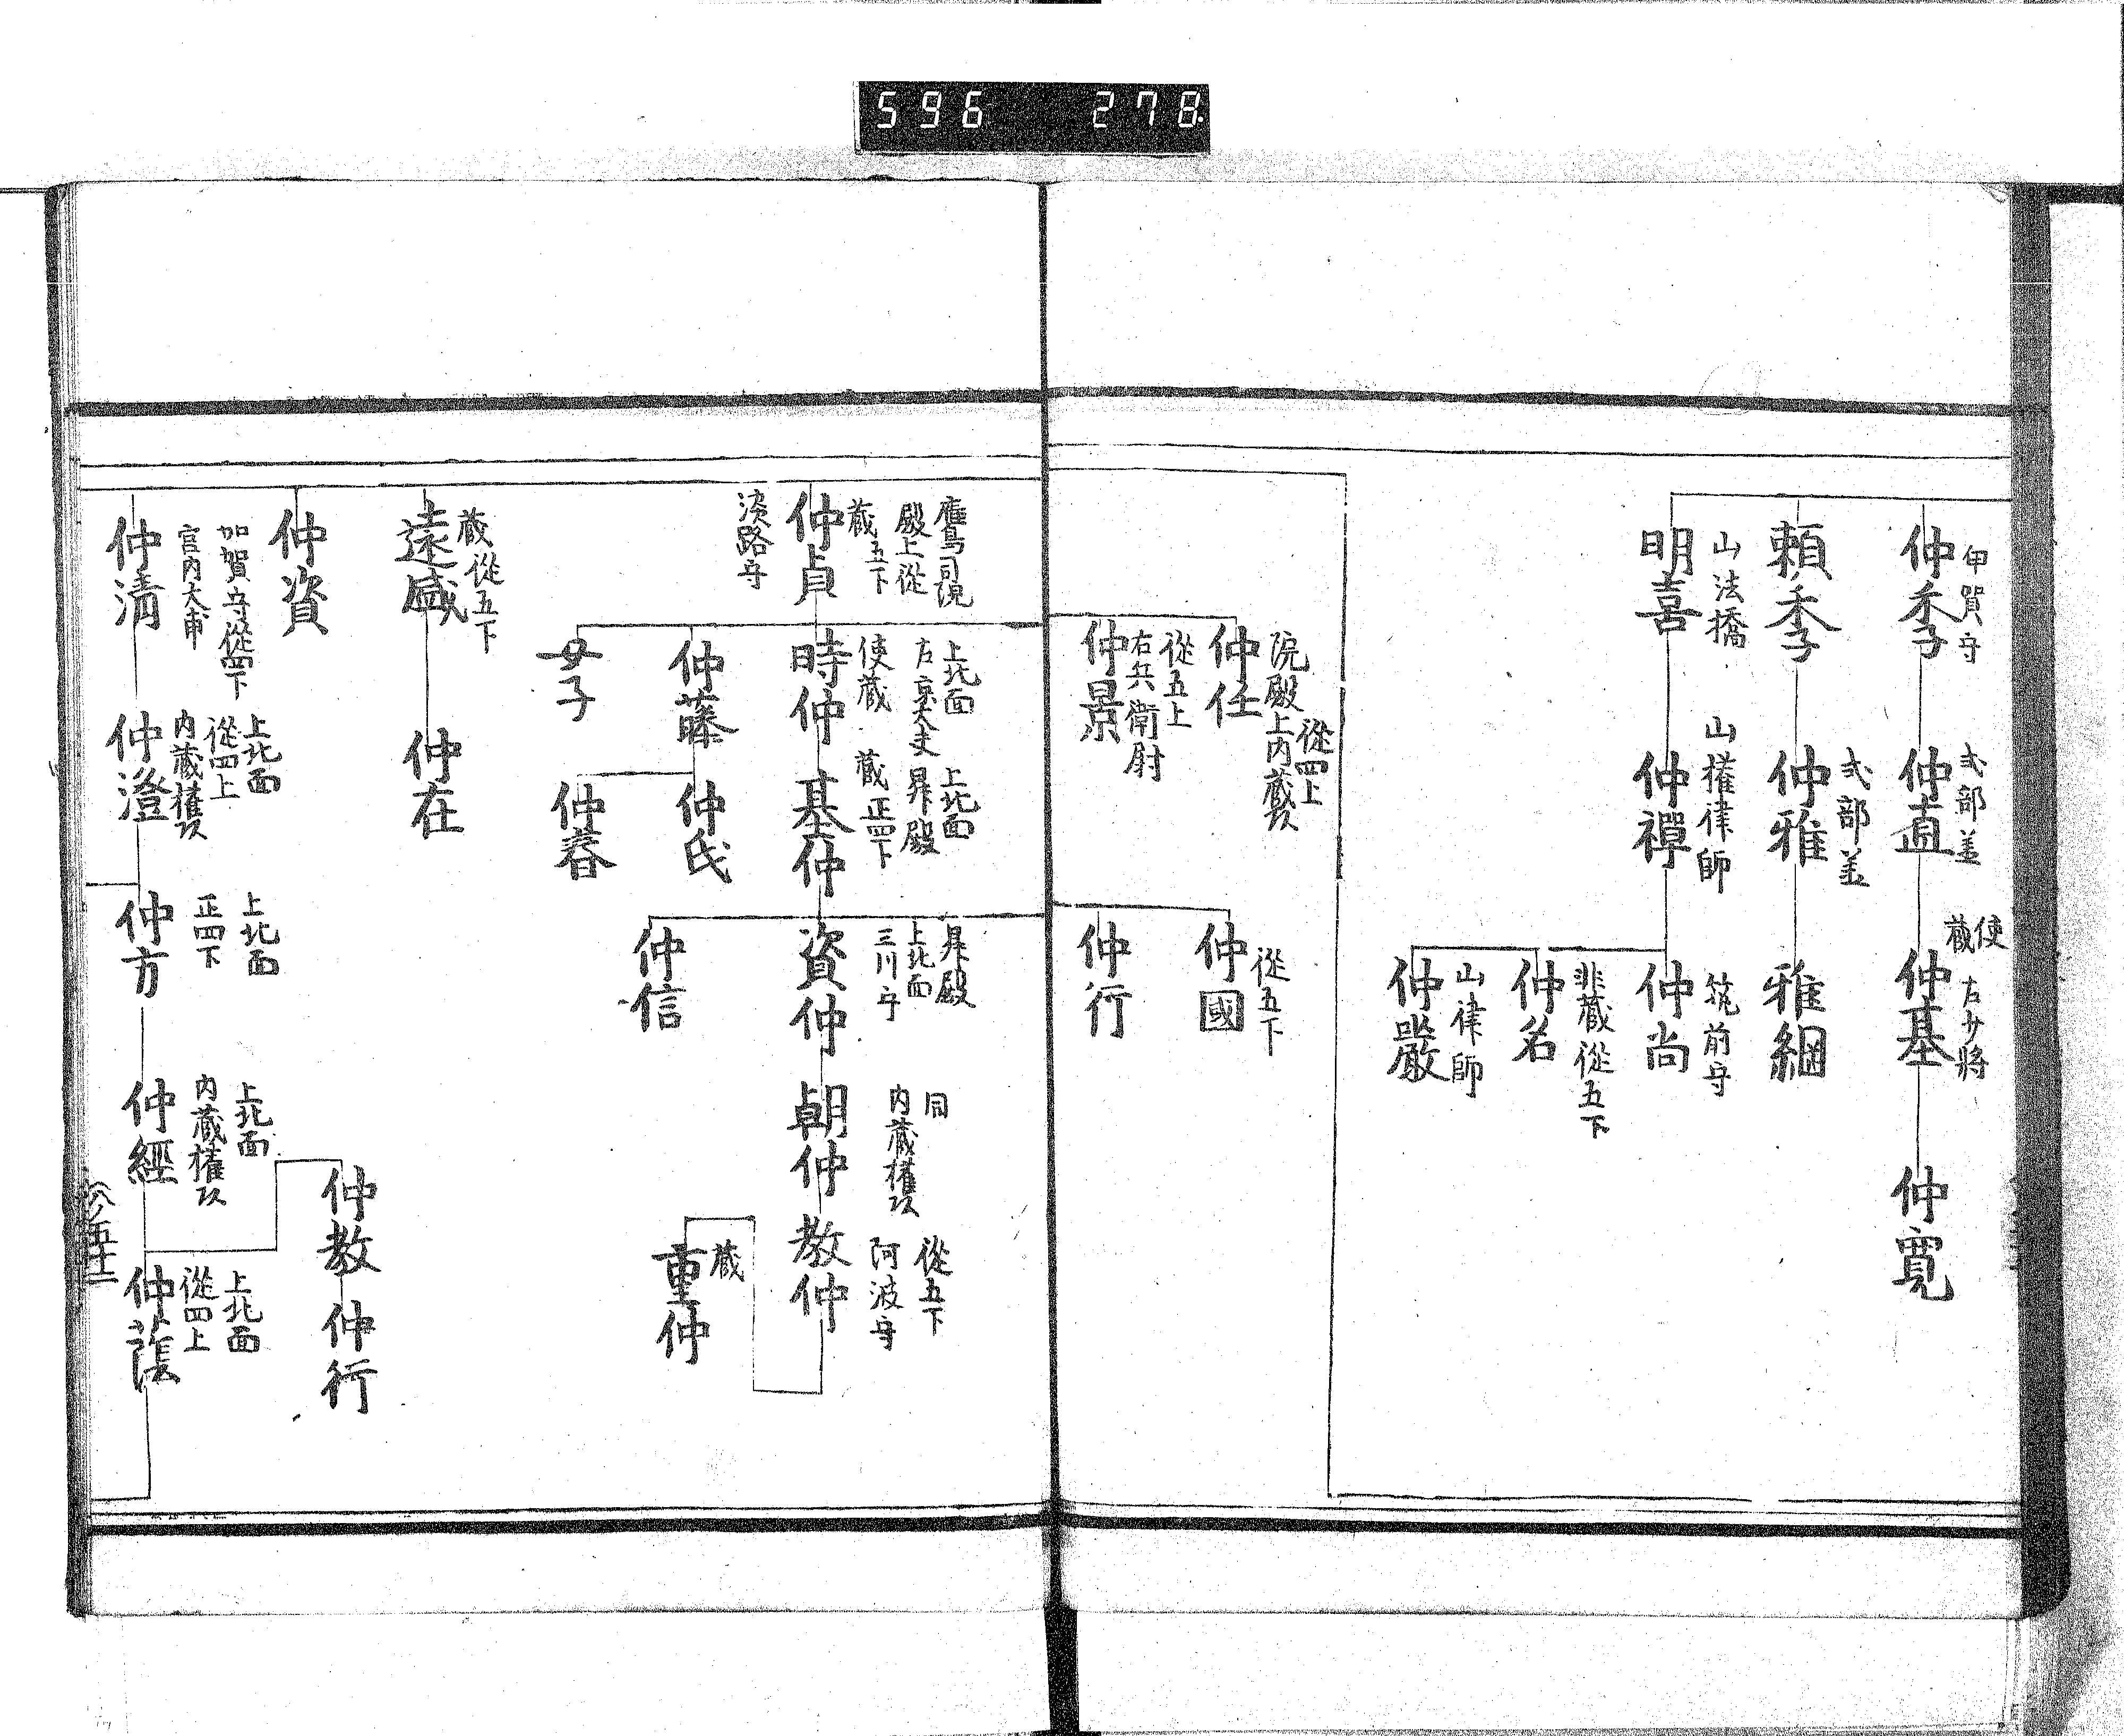 596 278
甲賀守
仲季
式部丞
仲直
使
蔵
右少將
仲基
仲寛
頼季
式部丞
仲雅
雅綱
山法橋
明喜
山権律師
仲禪
筑前守
仲尚
非蔵従五下
仲名
山律師
仲嚴
従四上
院殿上内蔵頭
仲任
従五上
右兵衛尉
仲景
従五下
仲國
仲行
鷹司院
殿上従
蔵五下
仲貞
淡路守
上北面
右京大夫
使蔵
時仲
上北面
昇殿
蔵正四下
基仲
昇殿
上北面
三川守
資仲
同
内蔵権頭
朝仲
従五下
阿波守
教仲
蔵
重仲
仲信
仲藤
仲氏
仲春
女子
蔵従五下
遠盛
仲在
仲資
加賀守従四下
宮内大甫
仲清
上北面
従四上
内蔵権頭
仲澄
上北面
正四下
仲方
上北面
内蔵権頭
仲經
仲教
仲行
上北面
従四上
仲蔭